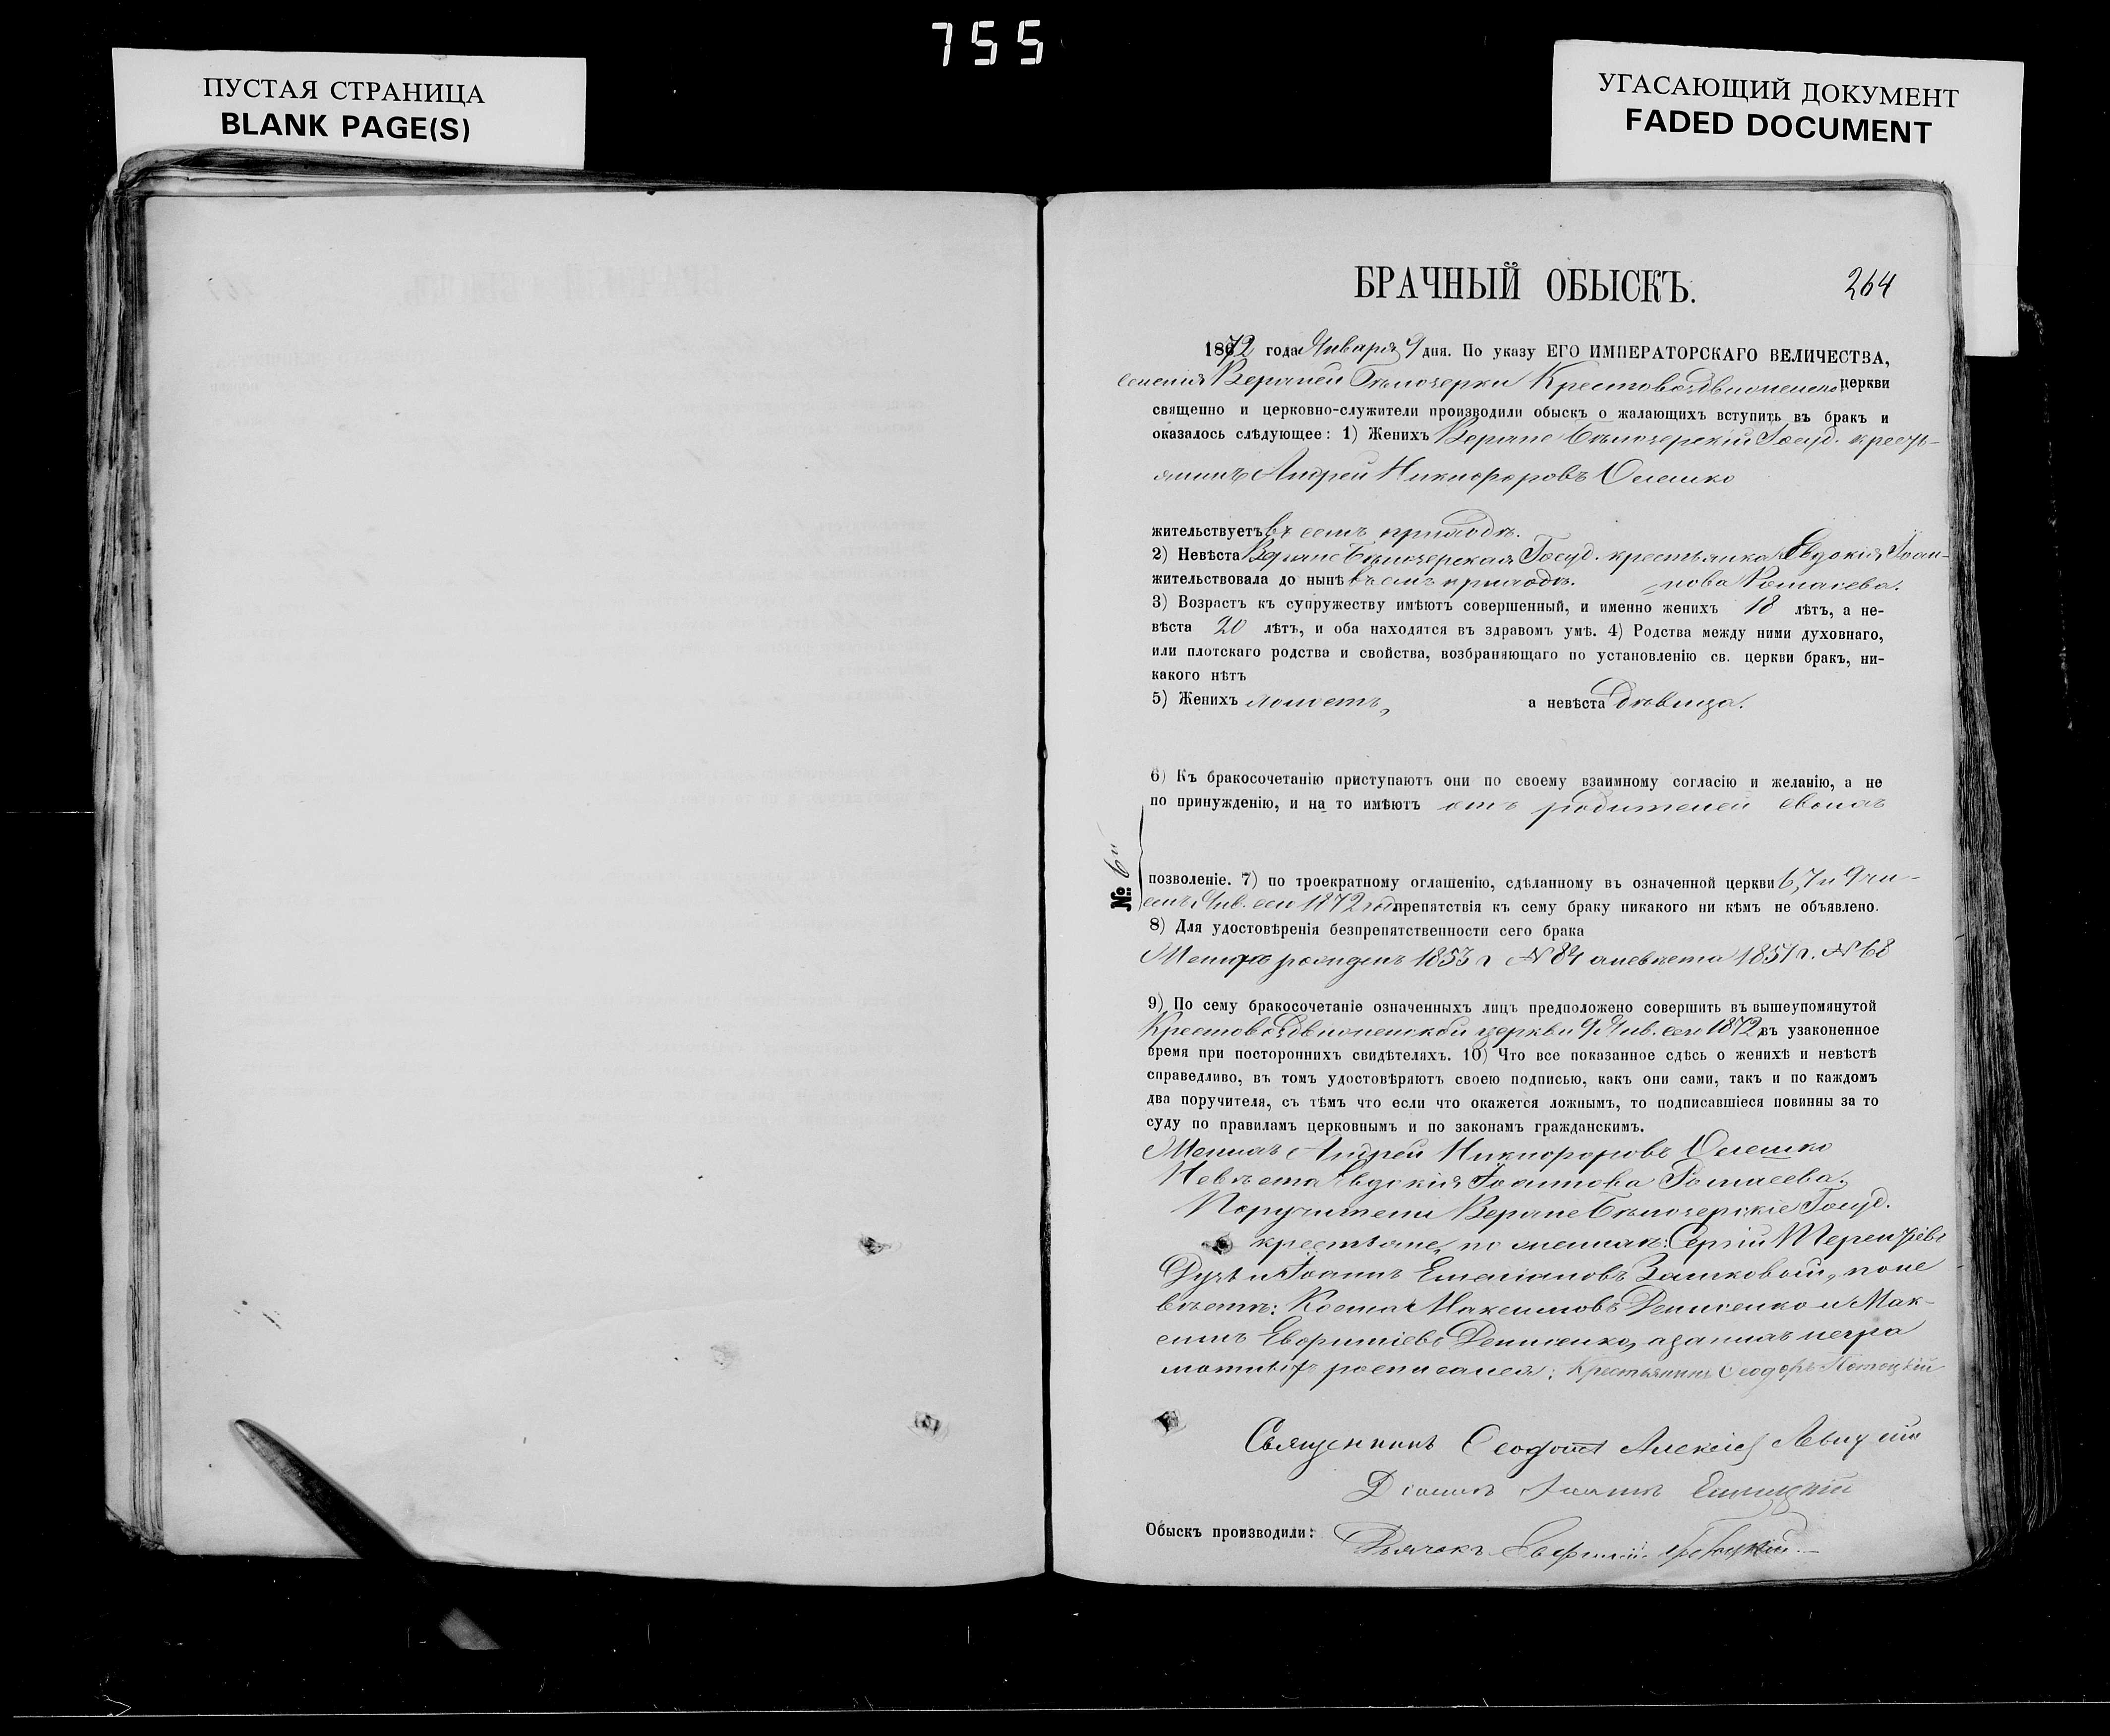 755
ПУСТАЯ СТРАНИЦА
BLANK PAGE(S)
УГАСАЮЩИЙ ДОКУМЕНТ
FADED DOCUMENT
БРАЧНЫЙ ОБЫСКЪ.
264
1872 года Января 9 дня. По указу ЕГО ИМПЕРАТОРСКАГО ВЕЛИЧЕСТВА,
селенія Верхней Бѣлозерки Крестовоздвиженской церкви
священно и церковно-служители производили обыскъ о жалающихъ вступить въ бракъ и
оказалось слѣдующее: 1) Женихъ Верхне Бѣлозерскій Госуд. кресть-
янинъ Андрей Никифоровъ Олешко
жительствуетъ въ семъ приходѣ.
2) Невѣста Верхне Бѣлозерская Госуд. крестьянка Евдокія Іоан-
жительствовала до нынѣ въ семъ приходѣ. нова
3) Возрастъ къ супружеству имѣютъ совершенный, и именно женихъ 18 лѣтъ, а не-
вѣста 20 лѣтъ, и оба находятся въ здравомъ умѣ. 4) Родства между ними духовнаго,
или плотскаго родства и свойства, возбраняющаго по установленію св. церкви бракъ, ни-
какого нѣтъ
5) Женихъ холостъ, а невѣста дѣвица.
6) Къ бракосочетанію приступаютъ они по своему взаимному согласію и желанію, а не
по принужденію, и на то имѣютъ отъ родителей своихъ
№ 6й
позволеніе. 7) по троекратному оглашенію, сдѣланному въ означенной церкви 6, 7 и 9 чи-
селъ Янв. сего 1872 года препятствія къ сему браку никакого ни кѣмъ не объявлено.
8) Для удостовѣренія безпрепятственности сего брака
Женихъ рожденъ 1853 г № 84 а невѣста 1851 г. № 68
9) По сему бракосочетаніе означенныхъ лицъ предположено совершить въ вышеупомянутой
Крестовоздвиженской церкви 9 Янв. сего 1872 въ узаконенное
время при постороннихъ свидѣтеляхъ. 10) Что все показанное сдѣсь о женихѣ и невѣстѣ
справедливо, въ томъ удостовѣряютъ своею подписью, какъ они сами, такъ и по каждомъ
два поручителя, съ тѣмъ что если что окажется ложнымъ, то подписавшіеся повинны за то
суду по правиламъ церковнымъ и по законамъ гражданскимъ.
Женихъ Андрей Никифоровъ Олешко
Невѣста Евдокія Іоаннова
Поручители Верхне Бѣлозерскіе Госуд.
крестьяне, по женихѣ: Сергій Терентіевъ
и Іоаннъ Емеліановъ по не
вѣстѣ: Косма Максимовъ Денисенко и Мак-
симъ Евфиміевъ Денисенко, а за нихъ негра
мотныхъ росписался: Крестьянинъ Ѳеодоръ
Священникъ Алексіевъ
Діаконъ Іоаннъ
Обыскъ производили:
Дьячокъ Евфимій